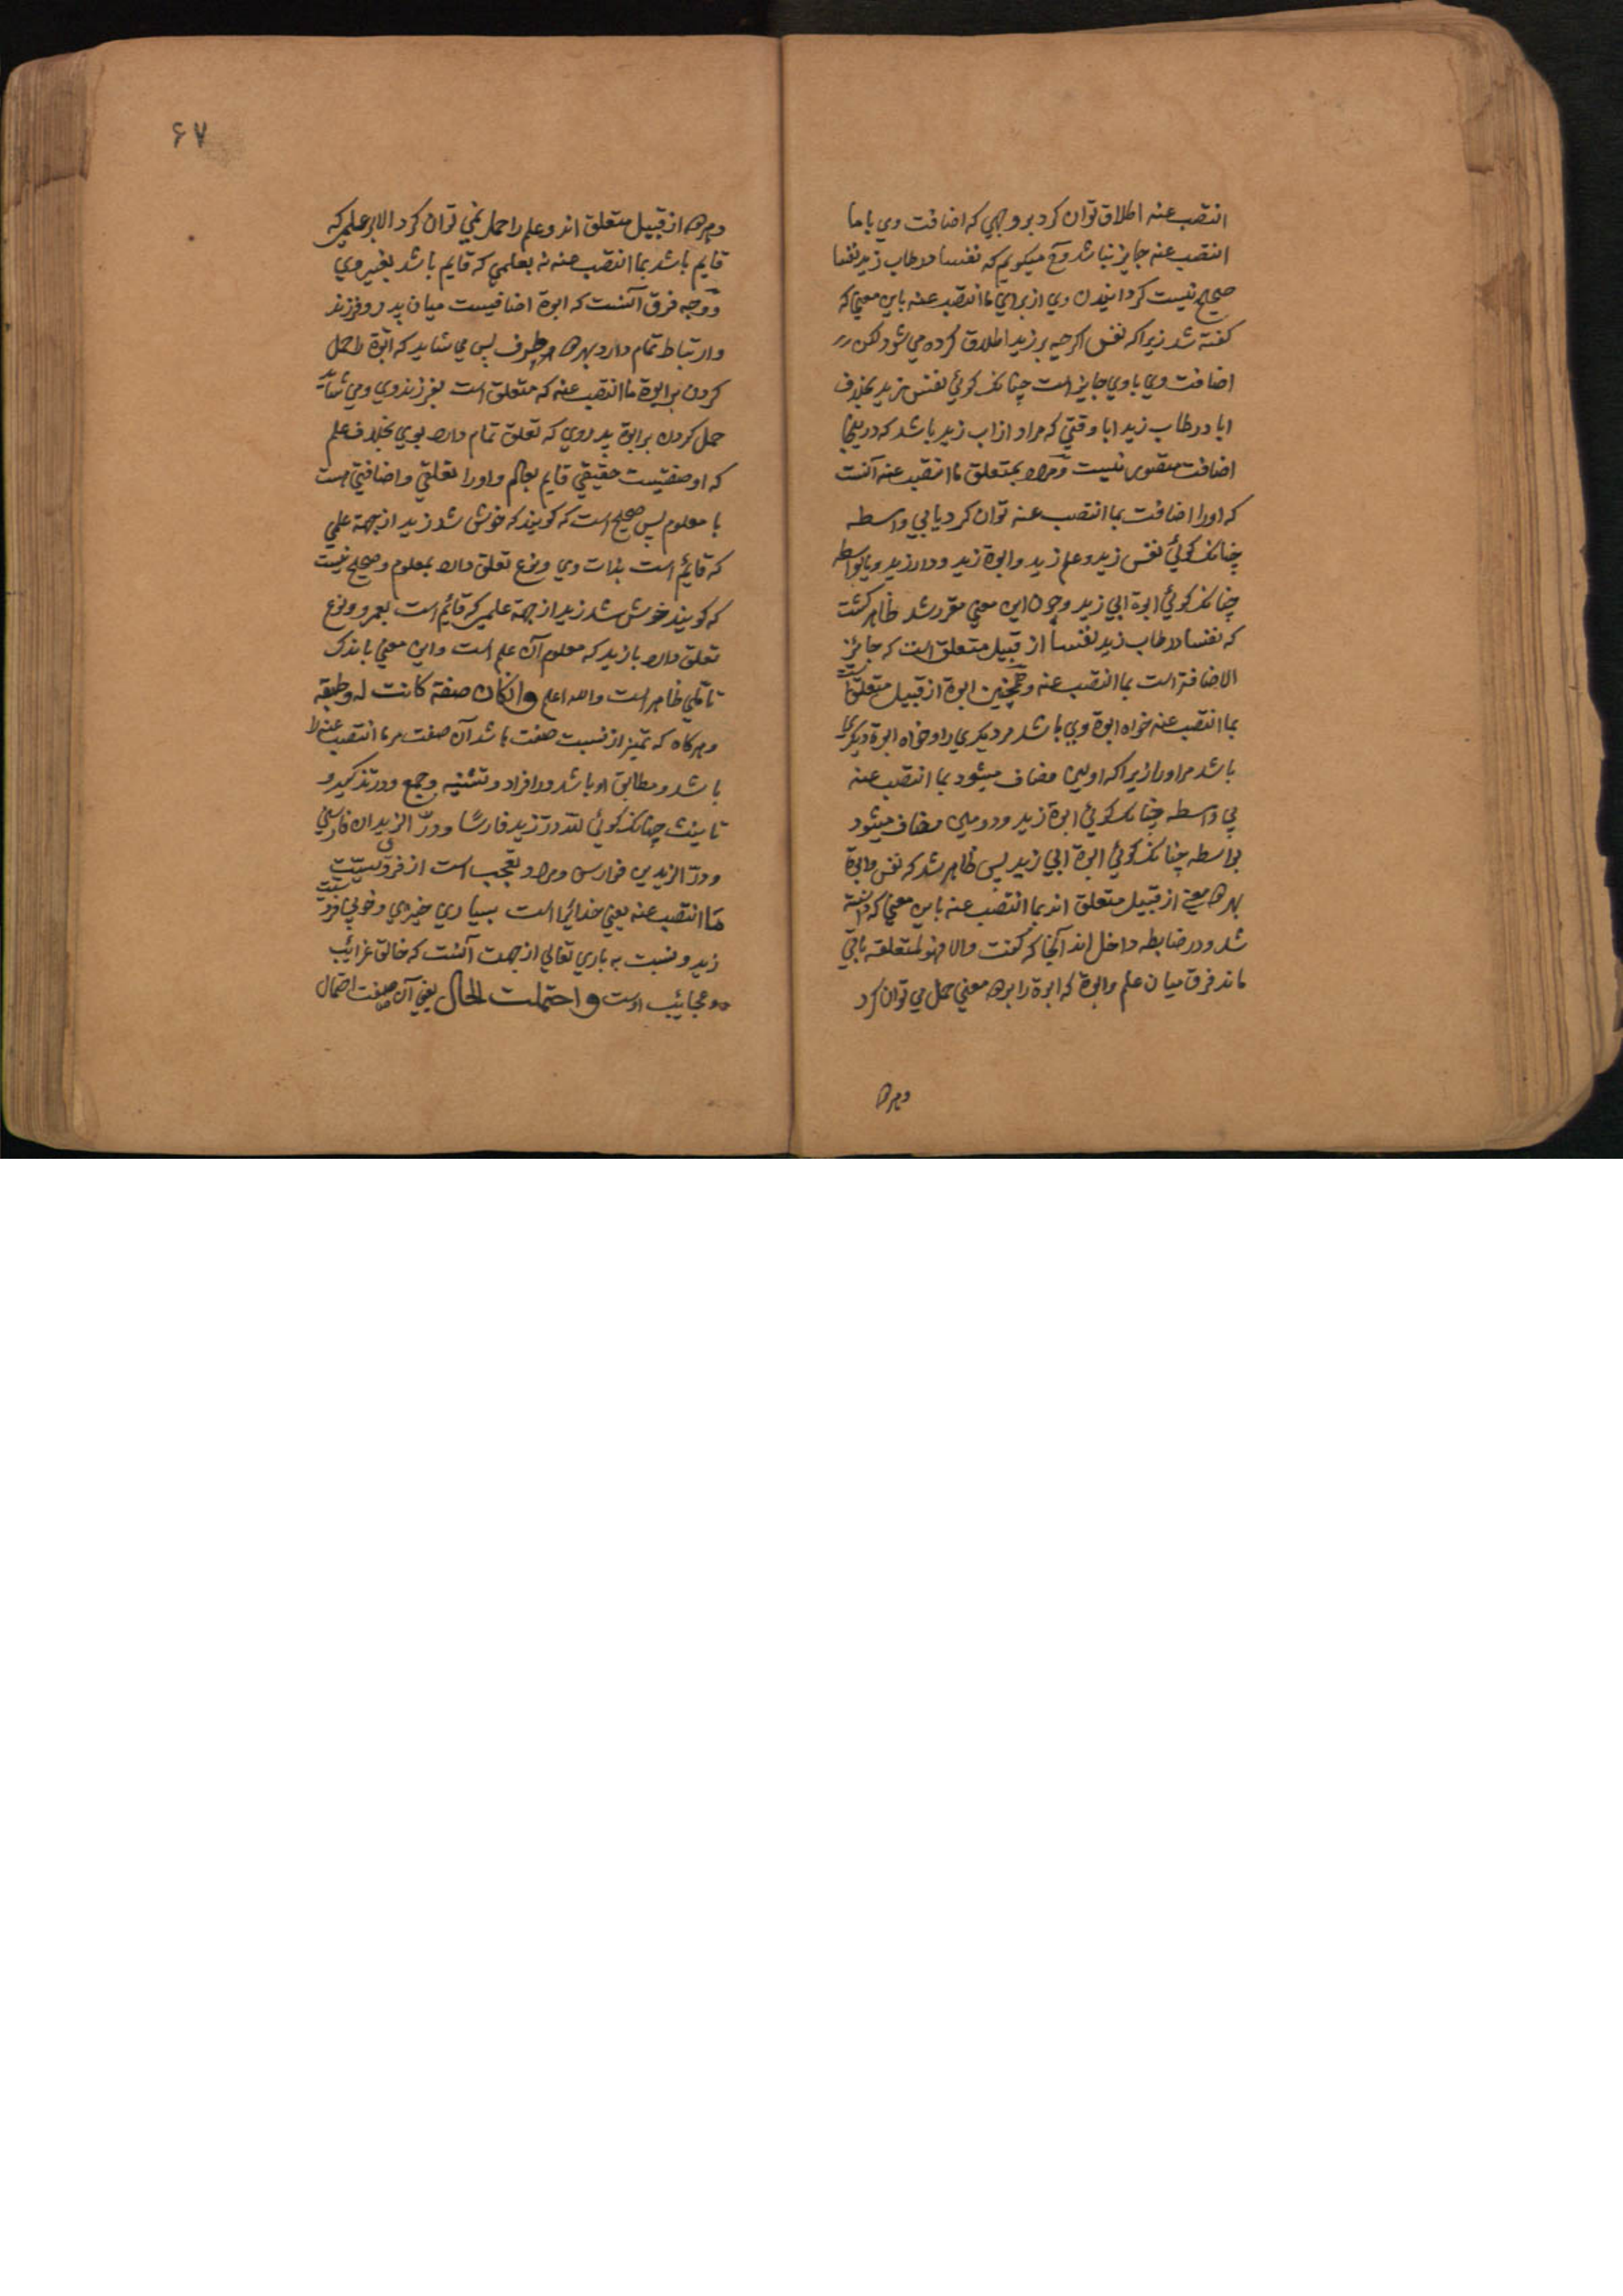 انتصب عنه اطلاق توان کرد بروجهی که اضافت وی باما
انتصب عنه جایز نباشد و میگویم که نفسا در طاب زید نفسا
صحیح نیست گردانیدن وی از برای ما انتصب عنه باین معنی که
گفته شد زیرا که نفس اگرچه بر زید اطلاق کرده می شود لکن
اضافت وی باوی جایز است چنانکه گوئی نفس زید بخلاف
ابا در طاب زید ابا وقتی که مراد از اب زید باشد که دراینجا
اضافت متصور نیست و مراد بمتعلق ما انتصب عنه آنست
که اورا اضافت بما انتصب عنه توان کرد یا بی واسطه
چنانکه گوئی نفس زید و علم زید و ابوة زید و دار زید و یا بواسطه
چنانکه گوئی ابوة ابی زید و چون این معنی مقرر شد ظاهر گشت
که نفسا در طاب زید نفسا از قبیل متعلق است که جائز
الاضافة است بما انتصب عنه و همچنین ابوة از قبیل متعلق است
بما انتصب عنه خواه ابوة وی باشد مر دیگری را و خواه ابوة دیگری
باشد مر اورا زیرا که اولین مضاف میشود بما انتصب عنه
بی واسطه چنانکه گوئی ابوة زید و دومین مضاف میشود
بواسطه چنانکه گوئی ابوة ابی زید پس ظاهر شد که نفس و ابوة
بهر دو معنی از قبیل متعلق اند بما انتصب عنه باین معنی که دانسته
شد و در ضابطه داخل اند آنجا که گفت والا فهو لمتعلقه باقی
ماند فرق میان علم و ابوة که ابوة را بر دو معنی حمل می توان کرد
و هر دو
۶۷
و هر دو از قبیل متعلق اند و علم را حمل نمی توان کرد الا بر علمی که
قایم باشد بما انتصب عنه نه بعلمی که قایم باشد بغیر وی
و وجه فرق آنست که ابوة اضافیست میان پدر و فرزند
و ارتباط تمام دارد بهر دو طرف پس می شاید که ابوة را حمل
کردن بر ابوة ما انتصب عنه که متعلق است بفرزند وی و می شاید
حمل کردن بر ابوة پدر وی که تعلق تمام دارد بوی بخلاف علم
که او صفتیست حقیقی قایم بعالم و اورا تعلقی و اضافتی است
با معلوم پس صحیح است که گویند که خوش شد زید از جهة علمی
که قائم است بذات وی و نوع تعلق دارد بمعلوم و صحیح نیست
که گویند خوش شد زید از جهة علمی که قائم است بعمرو و نوع
تعلق دارد بازید که معلوم آن علم است و این معنی باندک
تاملی ظاهر است والله اعلم وان کان صفة کانت له وطبقه
و هرگاه که تمیز از نسبت صفت باشد آن صفت مر ما انتصب عنه را
باشد و مطابق او باشد در افراد و تثنیه و جمع و در تذکیر و
تانیث چنانکه گوئی لله در زید فارسا و در الزیدان فارسین
و در الزیدین فوارس و مراد تعجب است از فروسیت
ما انتصب عنه یعنی خدائیراست بسیاری خیری و خوبی فروسیت
زید و نسبت به باری تعالی از جهت آنست که خالق غرائب
و عجائب اوست و احتملت الحال یعنی آن صفت احتمال